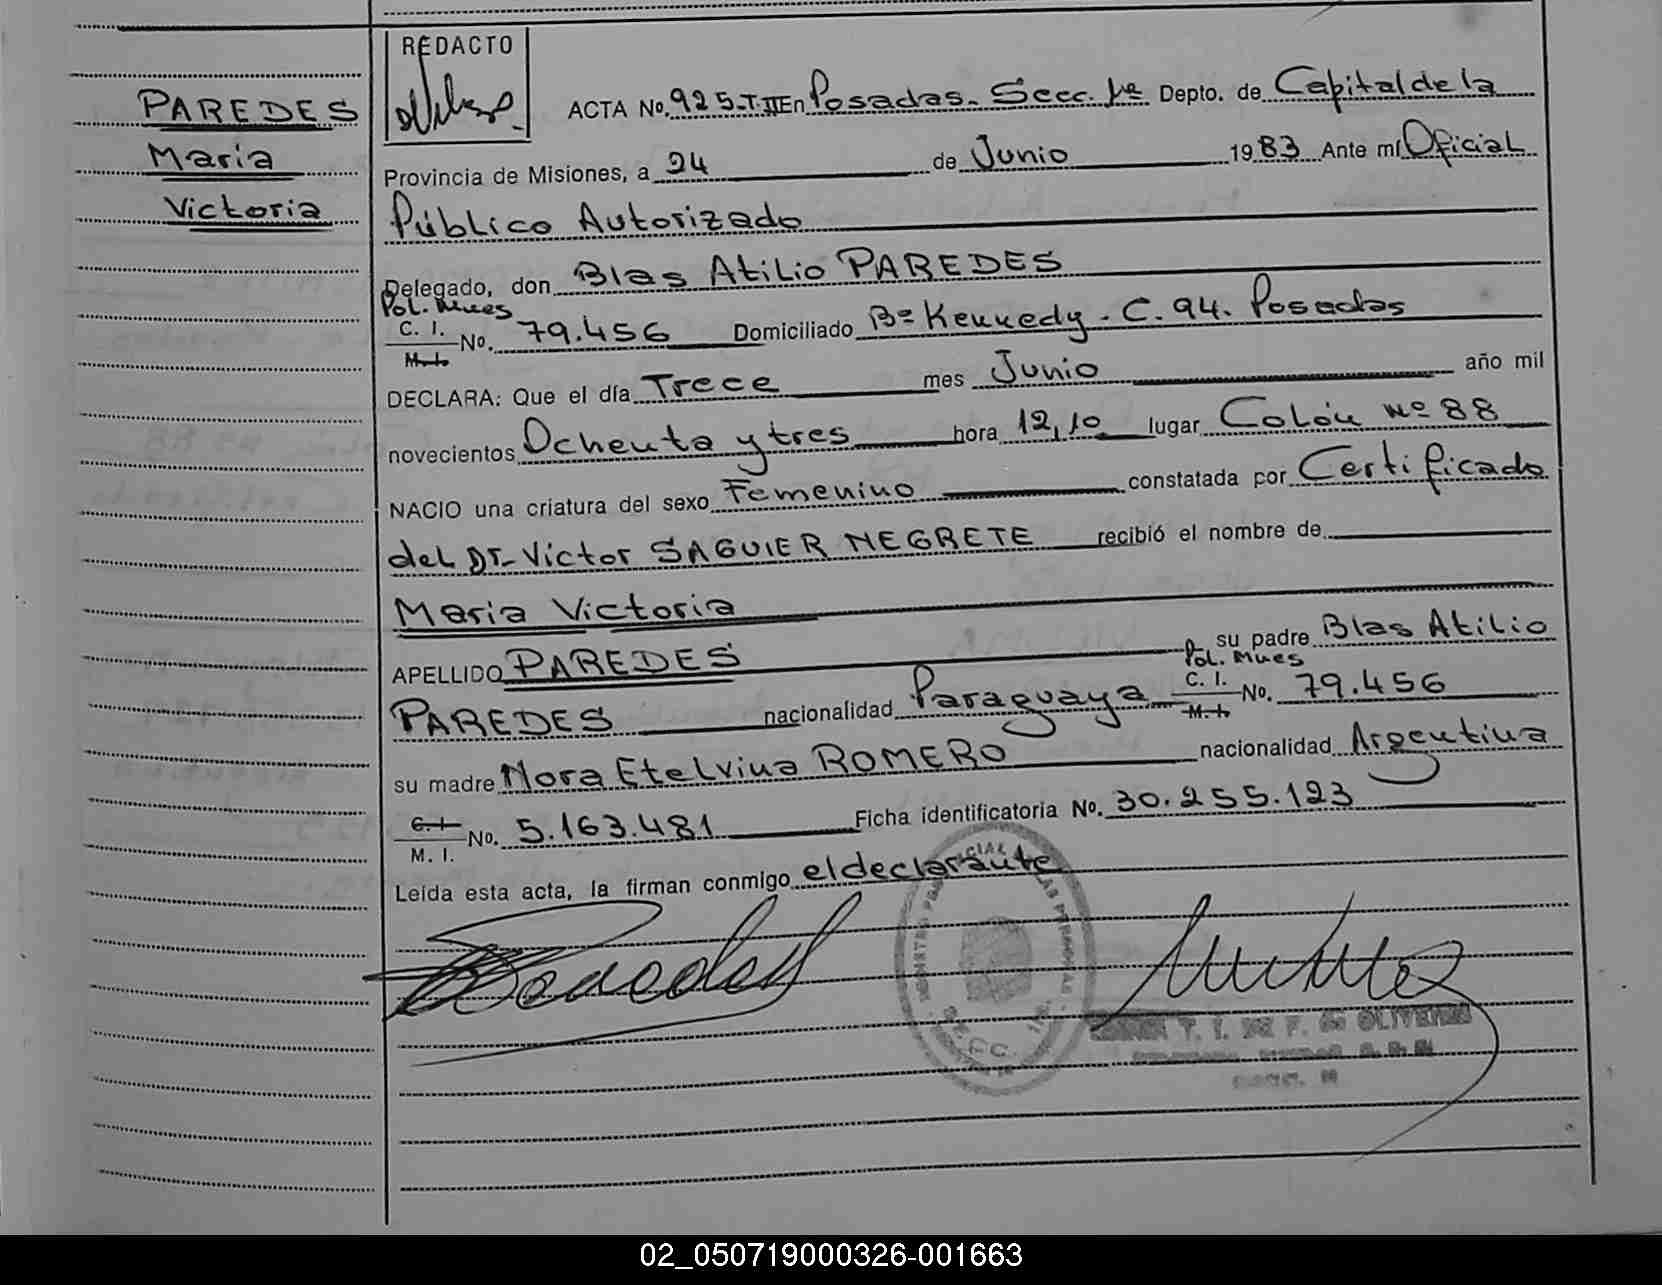 REDACTO
PAREDES
Maria
Victoria
ACTA No. 925-T.II En Posadas. Secc. 1ª Depto. de Capital de la
Provincia de Misiones, a 24 de Junio 1983 Ante mí Oficial
Público Autorizado
Delegado, don Blas Atilio PAREDES
Pol. Mnes
C. I.
M. I. No. 79.456 Domiciliado Bº Kennedy. C. 94. Posadas
DECLARA: Que el día Trece mes Junio año mil
novecientos Ochenta y tres hora 12,10 lugar Colón Nº 88
NACIO una criatura del sexo Femenino constatada por Certificado
del Dr. Victor SAGUIER NEGRETE recibió el nombre de
Maria Victoria
APELLIDO PAREDES su padre Blas Atilio
Pol. Mnes
PAREDES nacionalidad Paraguaya C. I.
M. I. No. 79.456
su madre Nora Etelvina ROMERO nacionalidad Argentina
C. I.
M. I. No. 5.163.481 Ficha identificatoria No. 30.255.123
Leída esta acta, la firman conmigo el declarante
T. I. DE F. de OLIVEIRA
02_050719000326-001663